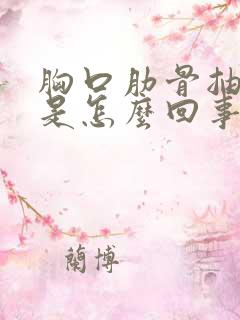 胸口肋骨抽
是怎麼回事
蘭博